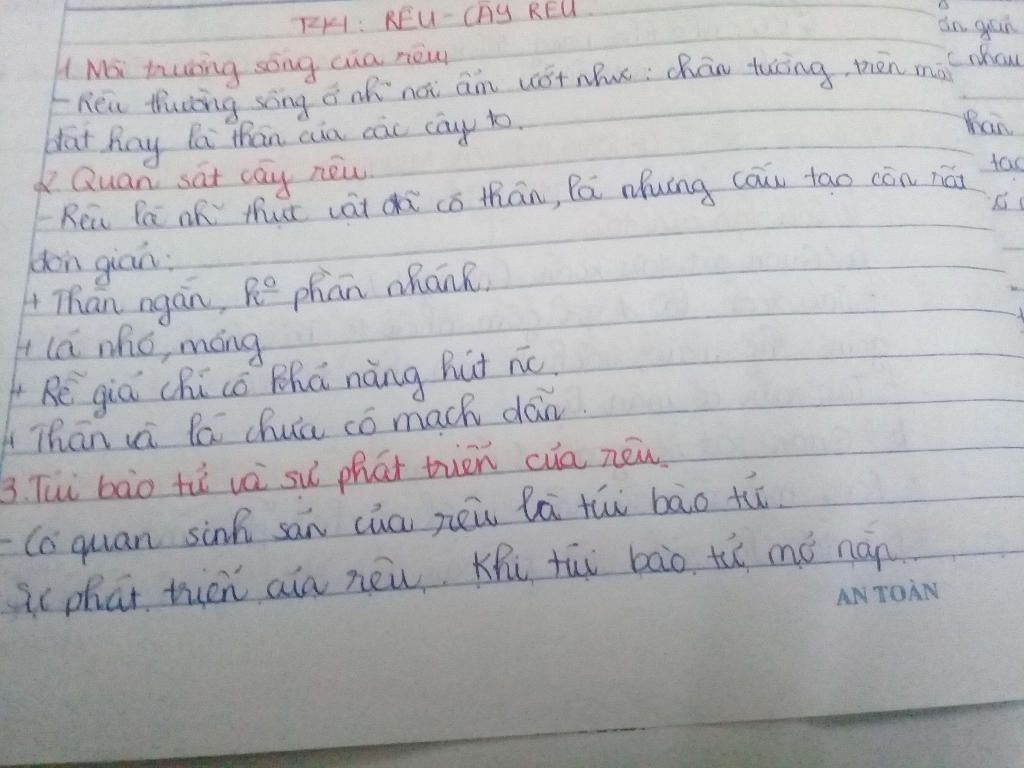 RÊU - CÂY RÊU
1. Môi trường sống của rêu
- Rêu thường sống ở nh~ nơi ẩm ướt như: chân tường, trên mặt
đất hay là thân của các cây to.
2. Quan sát cây rêu.
- Rêu là nh~ thực vật đã có thân, lá nhưng cấu tạo còn rất
đơn giản:
+ Thân ngắn, ko phân nhánh.
+ Lá nhỏ, mỏng
+ Rễ giả chỉ có khả năng hút nc.
+ Thân và lá chưa có mạch dẫn.
3. Túi bào tử và sự phát triển của rêu.
- Cơ quan sinh sản của rêu là túi bào tử.
phát triển của rêu. Khi túi bào tử mở nắp
AN TOÀN
ơn giản
nhau
thân
tạo